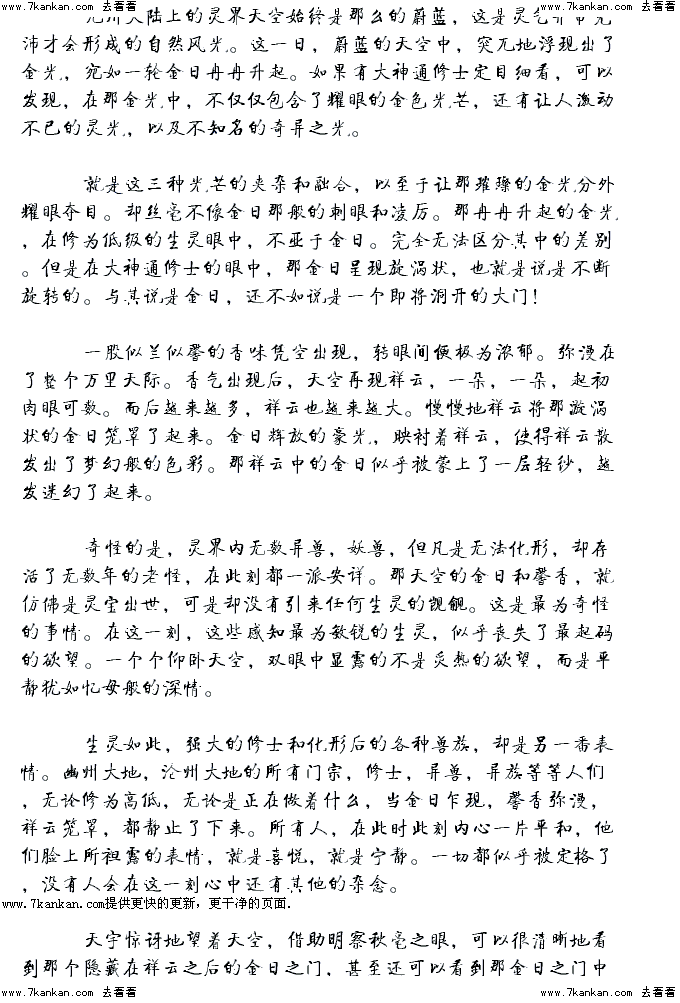 www.7kankan.com 去看看 www.7kankan.com 去看看 www.7kankan.com 去看看
大陆上的灵界天空始终是那么的蔚蓝，这是灵气
沛才会形成的自然风光。这一日，蔚蓝的天空中，突兀地浮现出了
金光，宛如一轮金日冉冉升起。如果有大神通修士定目细看，可以
发现，在那金光中，不仅仅包含了耀眼的金色光芒，还有让人激动
不已的灵光，以及不知名的奇异之光。
就是这三种光芒的夹杂和融合，以至于让那璀璨的金光分外
耀眼夺目。却丝毫不像金日那般的刺眼和凌厉。那冉冉升起的金光
，在修为低级的生灵眼中，不亚于金日。完全无法区分其中的差别
。但是在大神通修士的眼中，那金日呈现旋涡状，也就是说是不断
旋转的。与其说是金日，还不如说是一个即将洞开的大门！
一股似兰似馨的香味凭空出现，转眼间便极为浓郁。弥漫在
了整个万里天际。香气出现后，天空再现祥云，一朵，一朵，起初
肉眼可数。而后越来越多，祥云也越来越大。慢慢地祥云将那漩涡
状的金日笼罩了起来。金日辉放的豪光，映衬着祥云，使得祥云散
发出了梦幻般的色彩。那祥云中的金日似乎被蒙上了一层轻纱，越
发迷幻了起来。
奇怪的是，灵界内无数异兽，妖兽，但凡是无法化形，却存
活了无数年的老怪，在此刻都一派安详。那天空的金日和馨香，就
仿佛是灵宝出世，可是却没有引来任何生灵的觊觎。这是最为奇怪
的事情。在这一刻，这些感知最为敏锐的生灵，似乎丧失了最起码
的欲望。一个个仰卧天空，双眼中显露的不是炙热的欲望，而是平
静犹如忆母般的深情。
生灵如此，强大的修士和化形后的各种兽族，却是另一番表
情。幽州大地，沧州大地的所有门宗，修士，异兽，异族等等人们
，无论修为高低，无论是正在做着什么，当金日乍现，馨香弥漫，
祥云笼罩，都静止了下来。所有人，在此时此刻内心一片平和，他
们脸上所袒露的表情，就是喜悦，就是宁静。一切都似乎被定格了
，没有人会在这一刻心中还有其他的杂念。
www.7kankan.com提供更快的更新，更干净的页面.
天宇惊讶地望着天空，借助明察秋毫之眼，可以很清晰地看
到那个隐藏在祥云之后的金日之门，甚至还可以看到那金日之门中
www.7kankan.com 去看看 www.7kankan.com 去看看 www.7kankan.com 去看看